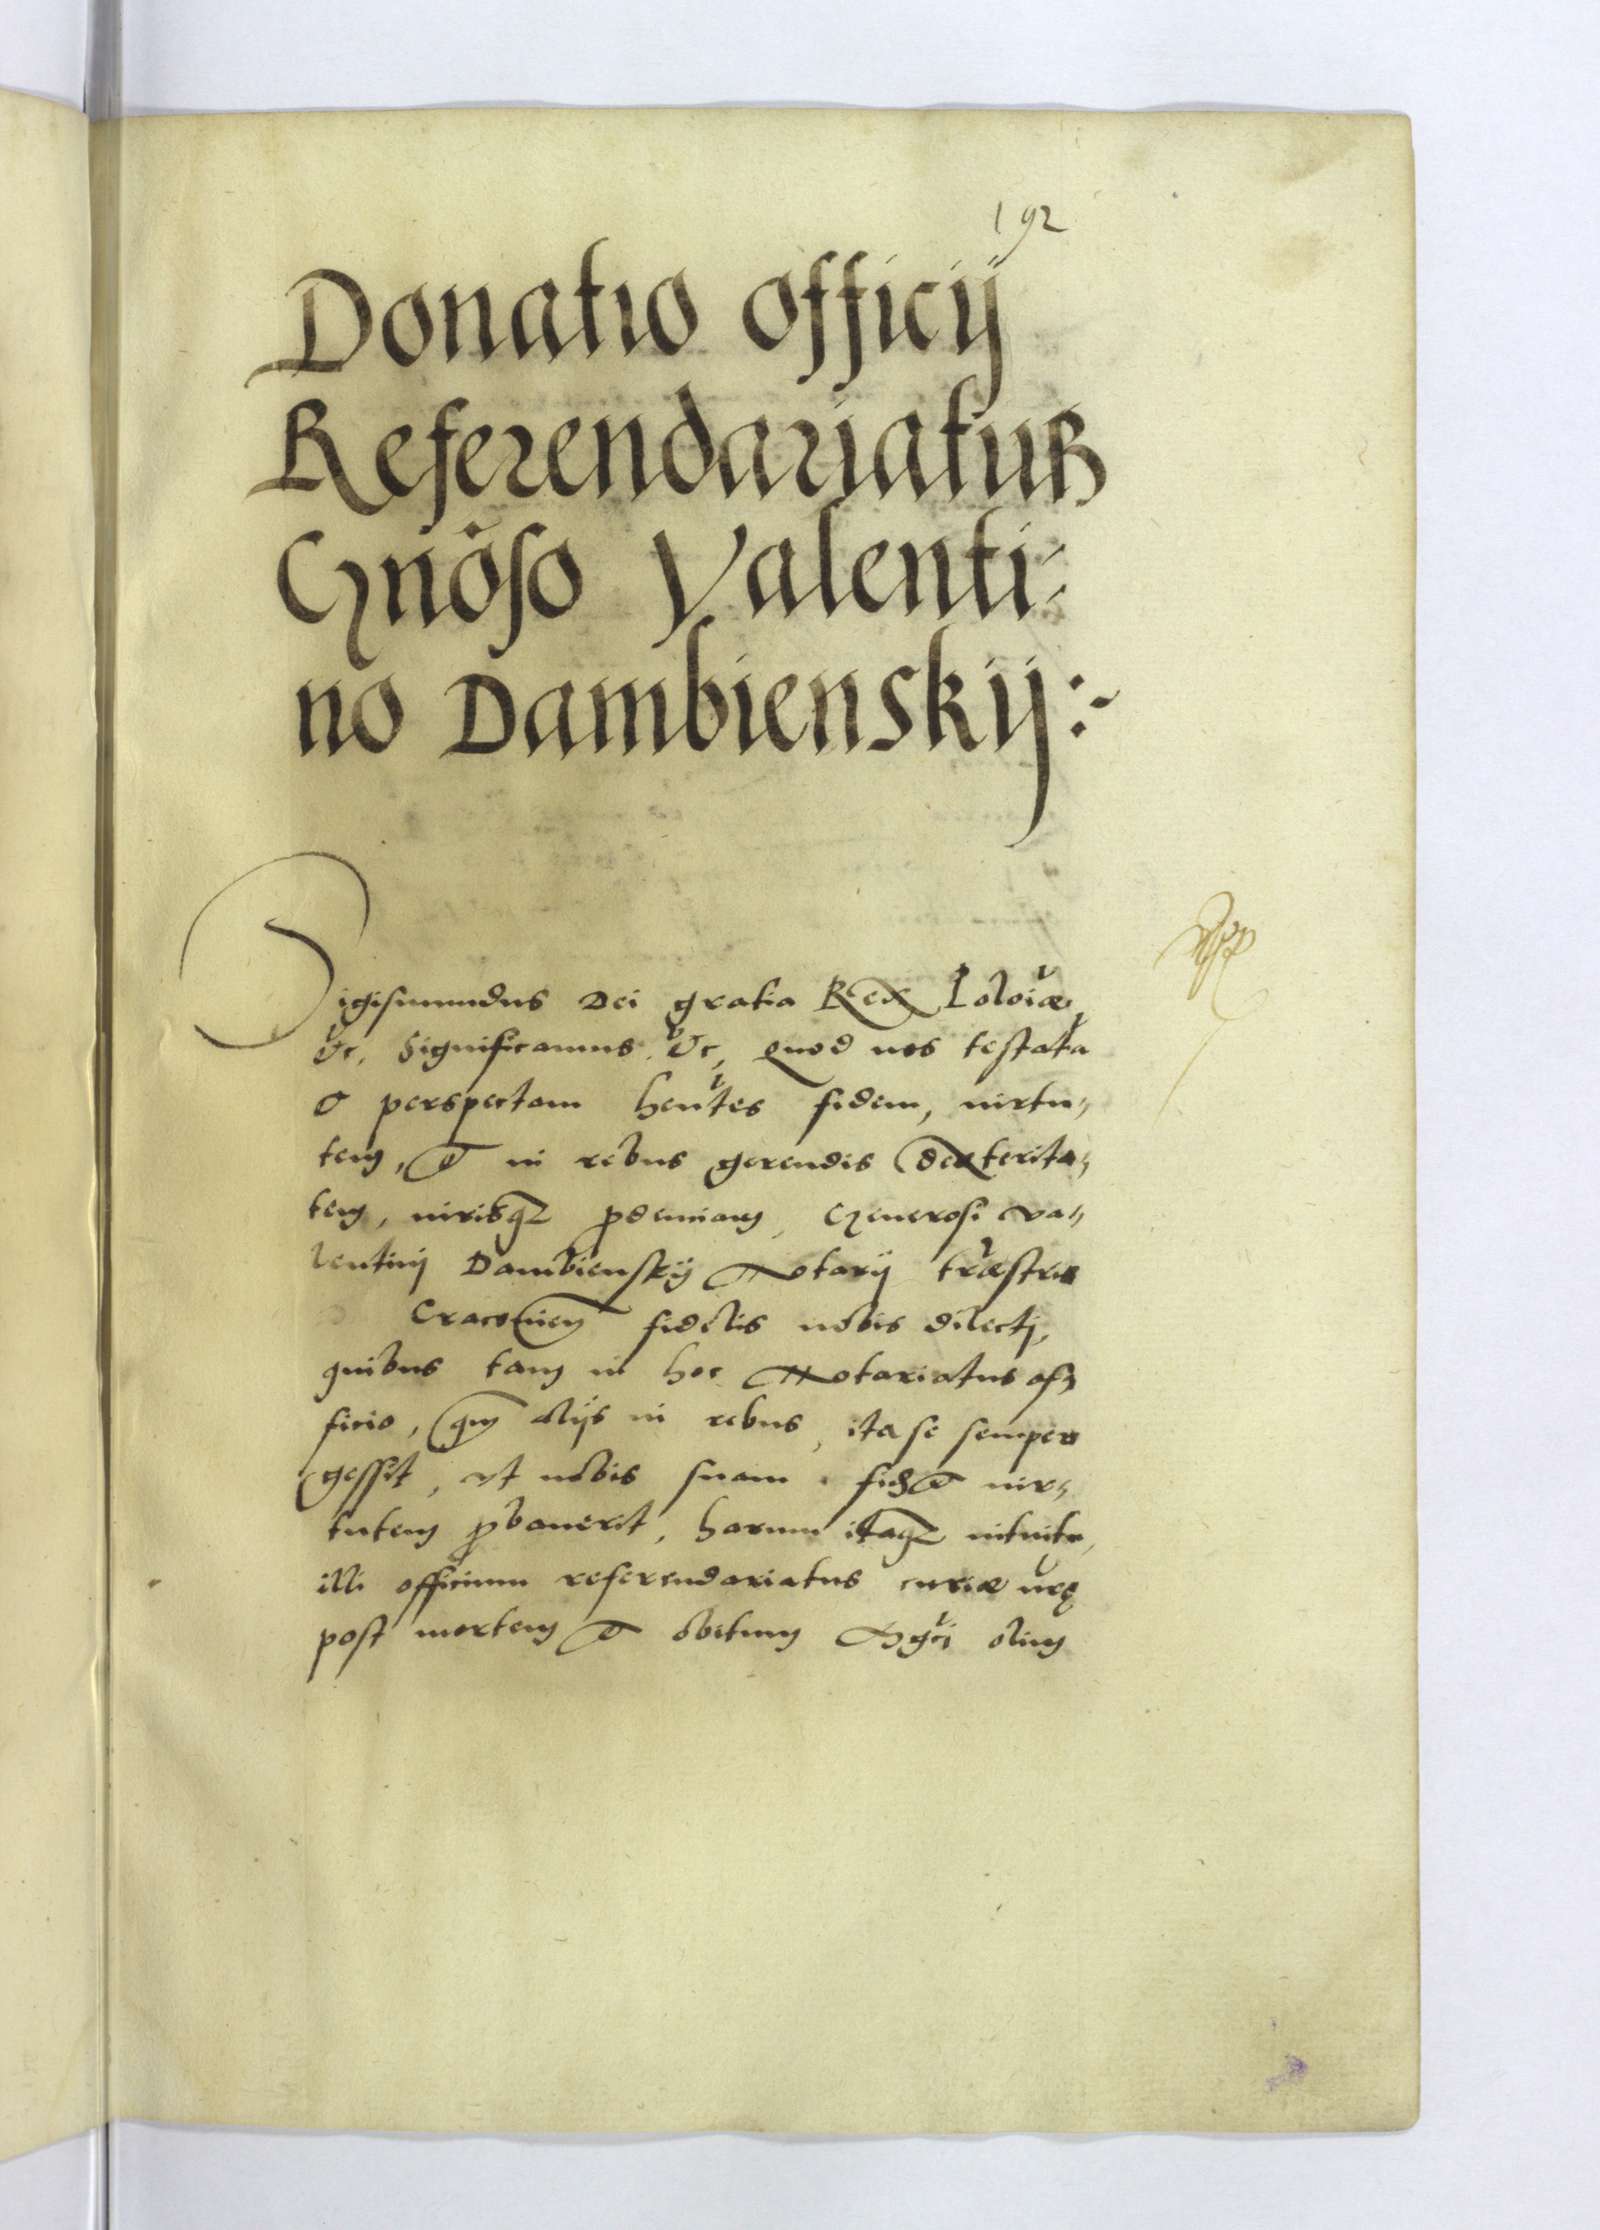 192
Donatio officij
Referendariatus
Gnōso Valenti-
no Dambienskij:~
Sigismundus Dei gratia Rex Poloiæ,
&c. Significamus &c, quod nos testata
& perspectam hentes fidem, virtu-
tem, & in rebus gerendis dexterita-
tem, virisq3 Generosi Va-
lentinij Dambienskij Notarij træstris
Cracovien fidelis nobis dilectj,
quibus tam in hoc Notariatus of-
ficio, qm alijs in rebus, ita se semper
gessit, vt nobis suam fidē & vir-
tutem pbauerit, harum itaq3 intuitu,
illi officium referendariatus curiæ nrę
post mortem & obitum Mgci olim